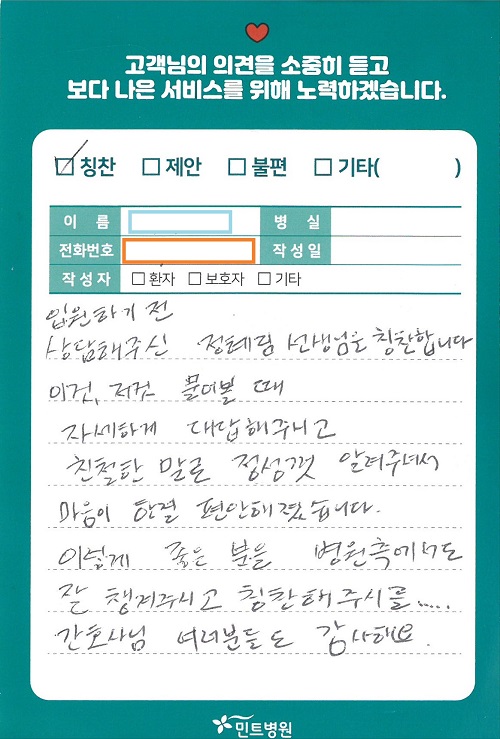 고객님의 의견을 소중히 듣고
보다 나은 서비스를 위해 노력하겠습니다.
칭찬 제안 불편 기타( )
이 름 병 실
전화번호 작성일
작성자 환자 보호자 기타
입원하기 전
상담해주신 정혜림 선생님을 칭찬합니다
이것, 저것 물어볼 때
자세하게 대답해주시고
친절한 말로 정성껏 알려주셔서
마음이 한결 편안해졌습니다.
이렇게 좋은 분을 병원측에서도
잘 챙겨주시고 칭찬해주시를.....
간호사님 여러분들도 감사해요.
민트병원